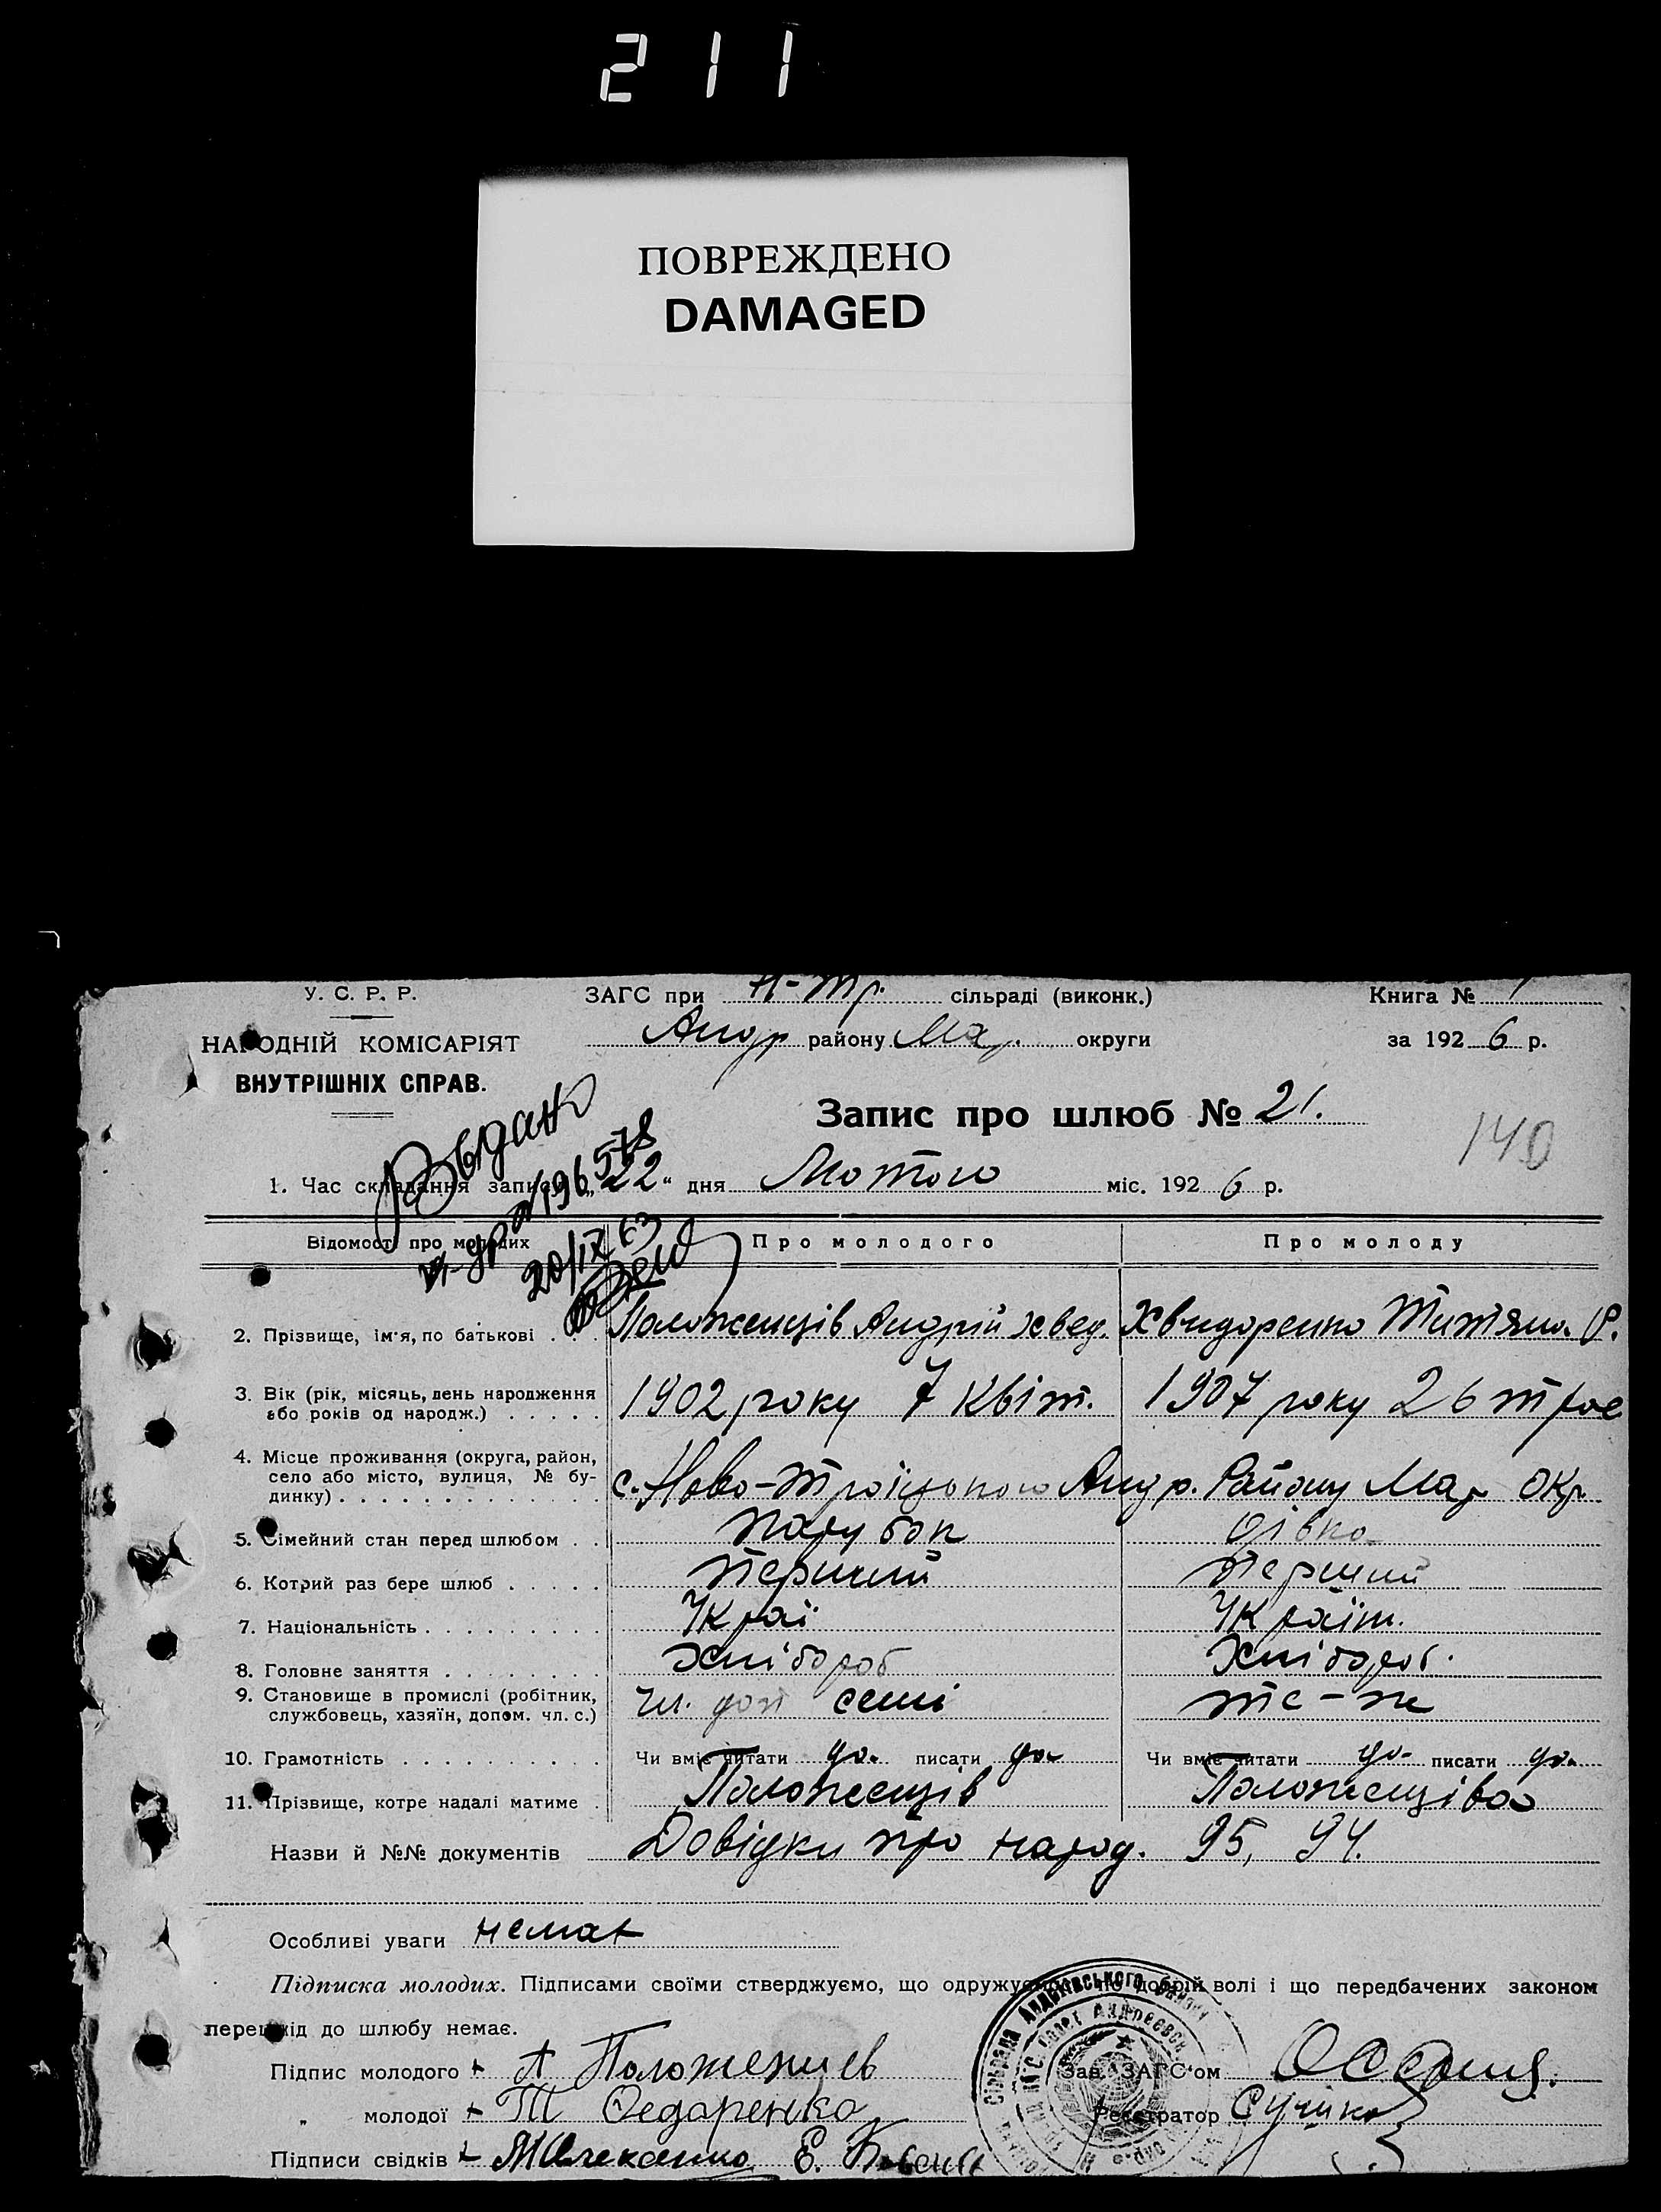 211
ПОВРЕЖДЕНО
DAMAGED
У. С. Р. Р.
НАРОДНІЙ КОМІСАРІЯТ
ВНУТРІШНІХ СПРАВ.
ЗАГС при Н-Тр. сільраді (виконк.)
Андр району Мар. округи
Книга № 1
за 1926 р.
Запис про шлюб № 21.
140
Выдано
20/IX 63
1. Час складання запису „22“ дня Лютого міс. 1926 р.
Відомості про молодих Про молодого Про молоду
2. Прізвище, ім'я, по батькові . . . Положенців Андрій Хвед. Хведоренко Титяна. Ф.
3. Вік (рік, місяць, день народження або років од народж.) . . . . . 1902 року 7 Квіт. 1907 року 26 трав
4. Місце проживання (округа, район, село або місто, вулиця, № будинку) . . . . . . . . . . . . . с. Ново-Троїцького Андр. Району Мар окр.
5. Сімейний стан перед шлюбом . . парубок дівка
6. Котрий раз бере шлюб . . . . . перший перший
7. Національність . . . . . . . . . Украї Україн.
8. Головне заняття . . . . . . . . хлібороб хлібороб.
9. Становище в промислі (робітник, службовець, хазяїн, допом. чл. с.) чл. доп семі те-ж
10. Грамотність . . . . . . . . . . Чи вміє читати да. писати да Чи вміє читати да. писати да.
11. Прізвище, котре надалі матиме . Положенців Положенціва
Назви й №№ документів Довідки про народ. 95, 94.
Особливі уваги немає
Підписка молодих. Підписами своїми стверджуємо, що одружуємось по добрій волі і що передбачених законом
перешкід до шлюбу немає.
Підпис молодого + А Положенцев
„ молодої + Т Федаренко
Підписи свідків +
Зав. ЗАГС'ом
Регестратор